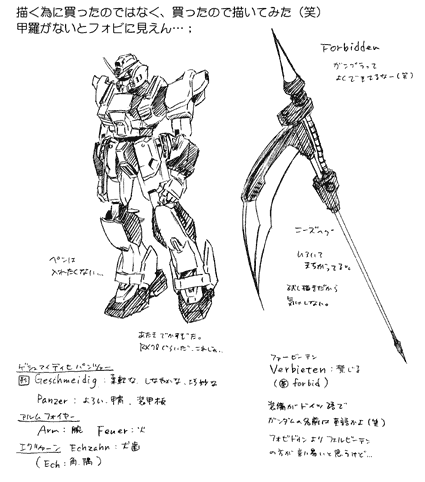 描く為に買ったのではなく、買ったので描いてみた（笑）
甲羅がないとフォビに見えん…；
Forbidden
ガンプラって
よくできてるなー(笑)
ニーズヘグ
ペンは
入れたくない…
まちがってる。
気にしない。
あたまでかすぎた。
ゲシュマイディッヒパンツァー
Geschmeidig：柔軟な、しなやかな、巧妙な
Panzer：よろい、甲冑、装甲板
アルムフォイヤー
Arm：腕 Feuer：火
エクツァーン Echzahn：犬歯
(Ech：角、隅)
ファービーテン
Verbieten：禁じる
(英 forbid)
装備がドイツ語で
ガンダムの名前は英語かよ(笑)
フォビドゥンよりフェルビーテン
の方が言い易いと思うけど…